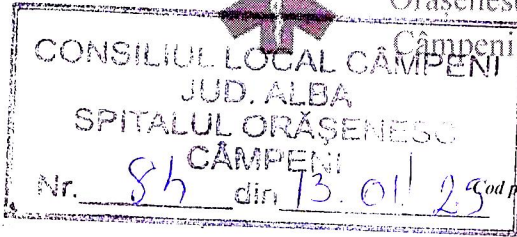 Orășenesc
Câmpeni
CONSILIUL LOCAL CÂMPENI
JUD. ALBA
SPITALUL ORĂȘENESC
CÂMPENI
Nr. din 13.01
Cod p